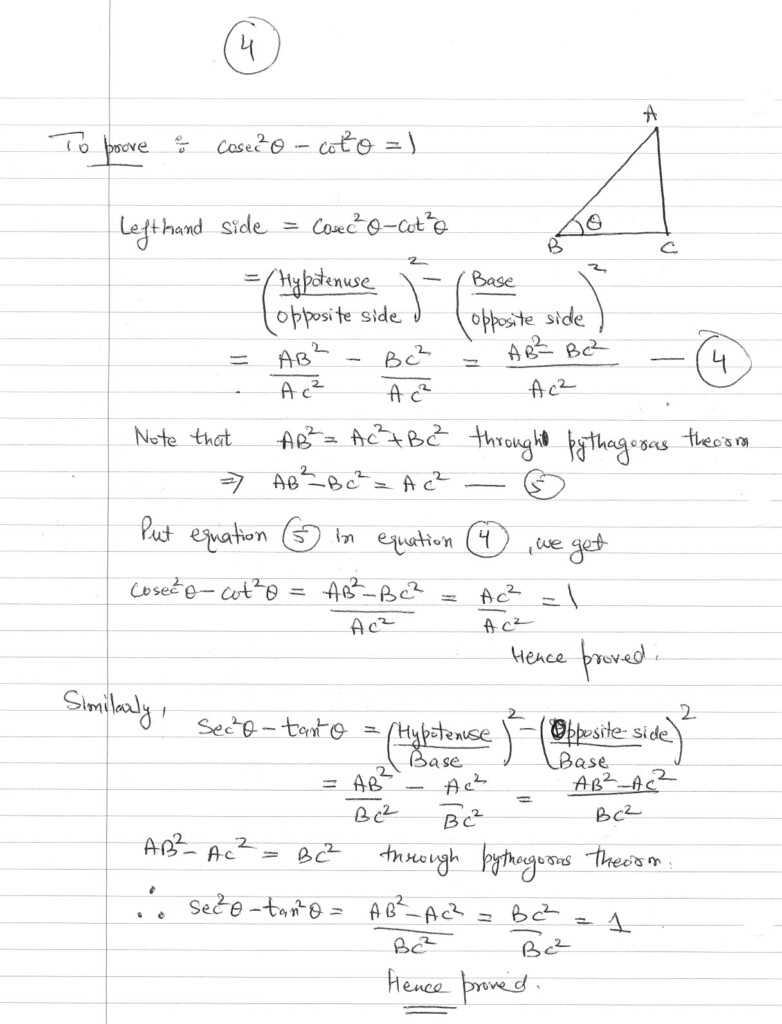 4
A
To prove ÷ cosec²θ – cot²θ = 1
θ
B C
Lefthand side = Cosec²θ – Cot²θ
= (Hypotenuse / opposite side)² – (Base / opposite side)²
= AB²/AC² – BC²/AC² = AB² – BC²/AC² — 4
Note that AB² = AC² + BC² through pythagoras theorm
⇒ AB² – BC² = AC² — 5
Put equation 5 in equation 4, we get
Cosec²θ – cot²θ = AB² – BC²/AC² = AC²/AC² = 1
Hence proved.
Similarly,
Sec²θ – tan²θ = (Hypotenuse / Base)² – (Opposite side / Base)²
= AB²/BC² – AC²/BC² = AB² – AC²/BC²
AB² – AC² = BC² through pythagoras theorm.
∴ Sec²θ – tan²θ = AB² – AC²/BC² = BC²/BC² = 1
Hence proved.